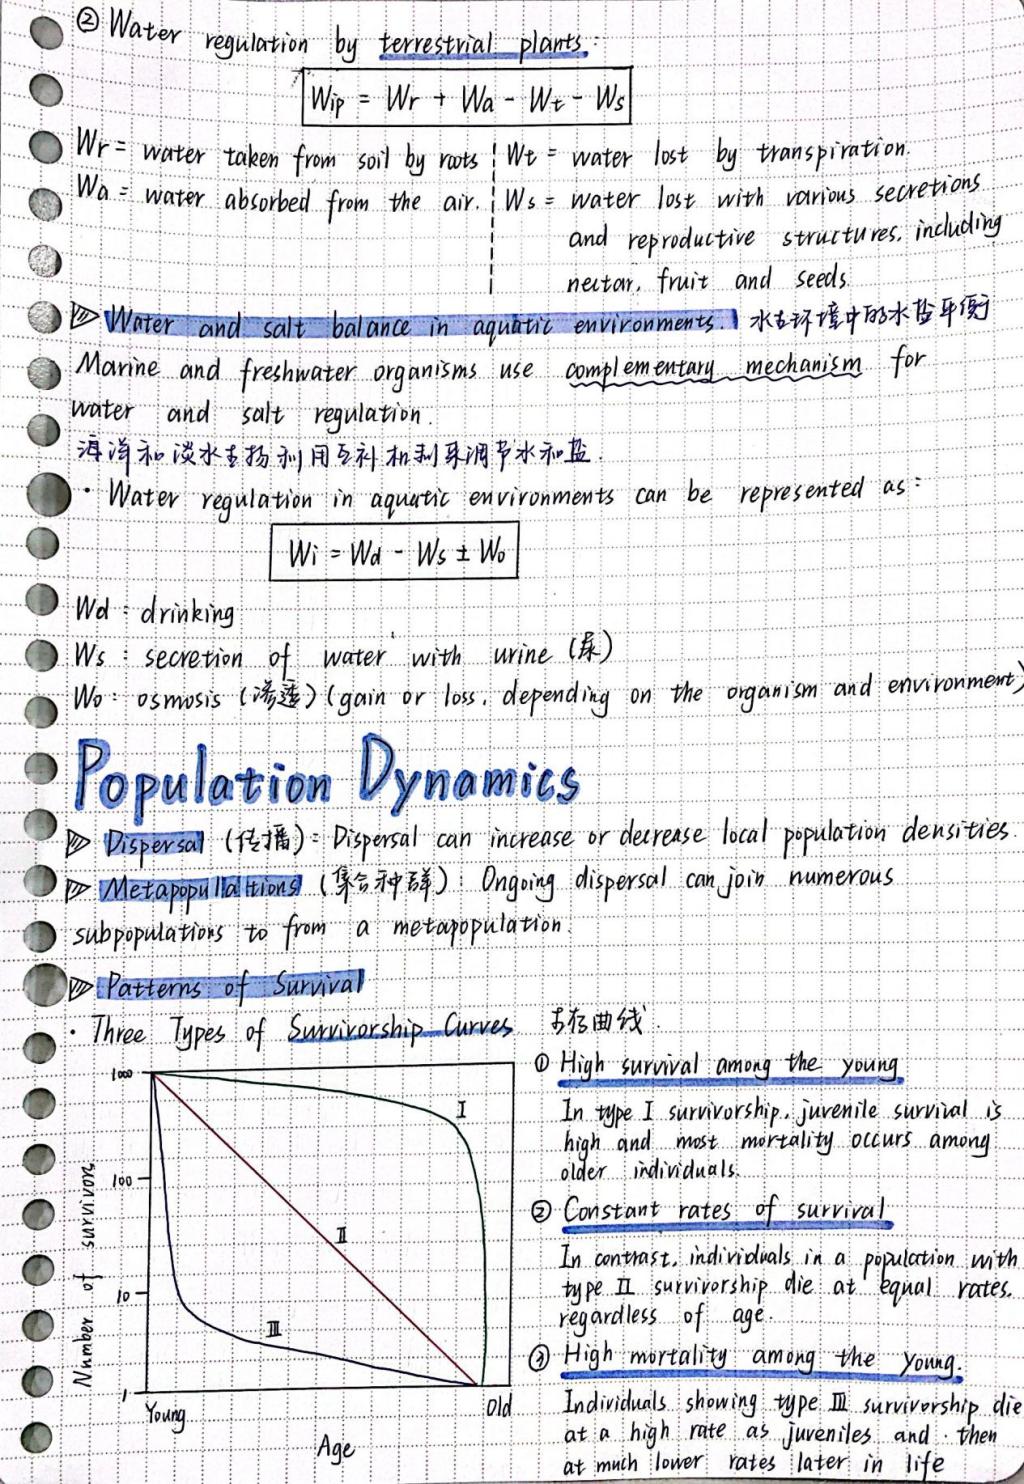 ② Water regulation by terrestrial plants:
Wip = Wr + Wa - Wt - Ws
Wr = water taken from soil by roots
Wa = water absorbed from the air.
Wt = water lost by transpiration.
Ws = water lost with various secretions
and reproductive structures, including
nectar, fruit and seeds.
Water and salt balance in aquatic environments. 水生环境中的水盐平衡
Marine and freshwater organisms use complementary mechanism for
water and salt regulation.
海洋和淡水生物利用互补机制来调节水和盐.
· Water regulation in aquatic environments can be represented as:
Wi = Wd - Ws ± Wo
Wd : drinking
Ws : secretion of water with urine (尿)
Wo : osmosis (渗透) (gain or loss, depending on the organism and environment)
Population Dynamics
Dispersal (传播): Dispersal can increase or decrease local population densities.
Metapopullations (集合种群): Ongoing dispersal can join numerous
subpopulations to from a metapopulation.
Patterns of Survival
· Three Types of Survivorship Curves 生存曲线.
Number of survivors
1000
100
10
1
I
II
III
Young
Old
Age
① High survival among the young
In type I survivorship, juvenile survival is
high and most mortality occurs among
older individuals.
② Constant rates of survival
In contrast, individuals in a population with
type II survivorship die at equal rates,
regardless of age.
③ High mortality among the young.
Individuals showing type III survivorship die
at a high rate as juveniles and then
at much lower rates later in life